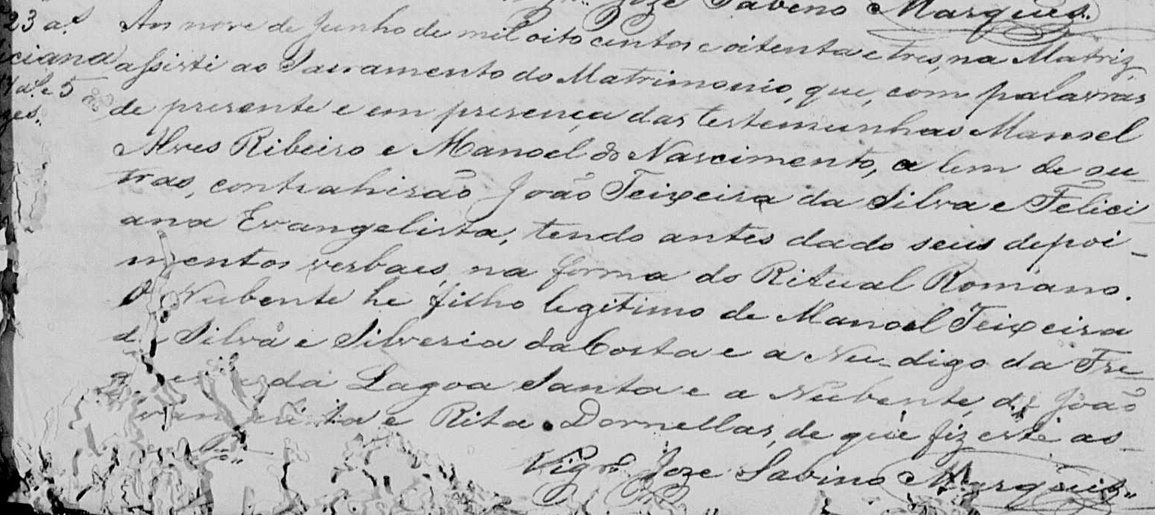 Joze Sabino Marques.
23 a.s Aos nove de Junho de mil oito centos e oitenta e tres, na Matriz,
iciana assisti ao Sacramento do Matrimonio, que, com palavras
de presente e em presença das testemunhas Manoel
Alves Ribeiro e Manoel do Nascimento, a lem de ou
tras, contrahirão João Teixeira da Silva e Felici
ana Evangelista, tendo antes dado seus depoi-
mentos verbaes na forma do Ritual Romano.
O Nubente he filho legitimo de Manoel Teixeira
da Silva e Silveria da Costa e a Nu-digo da Fre
da Lagoa Santa e a Nubente, de João
e Rita Dornellas, de que fiz este as-
Vigr.o Joze Sabino Marques